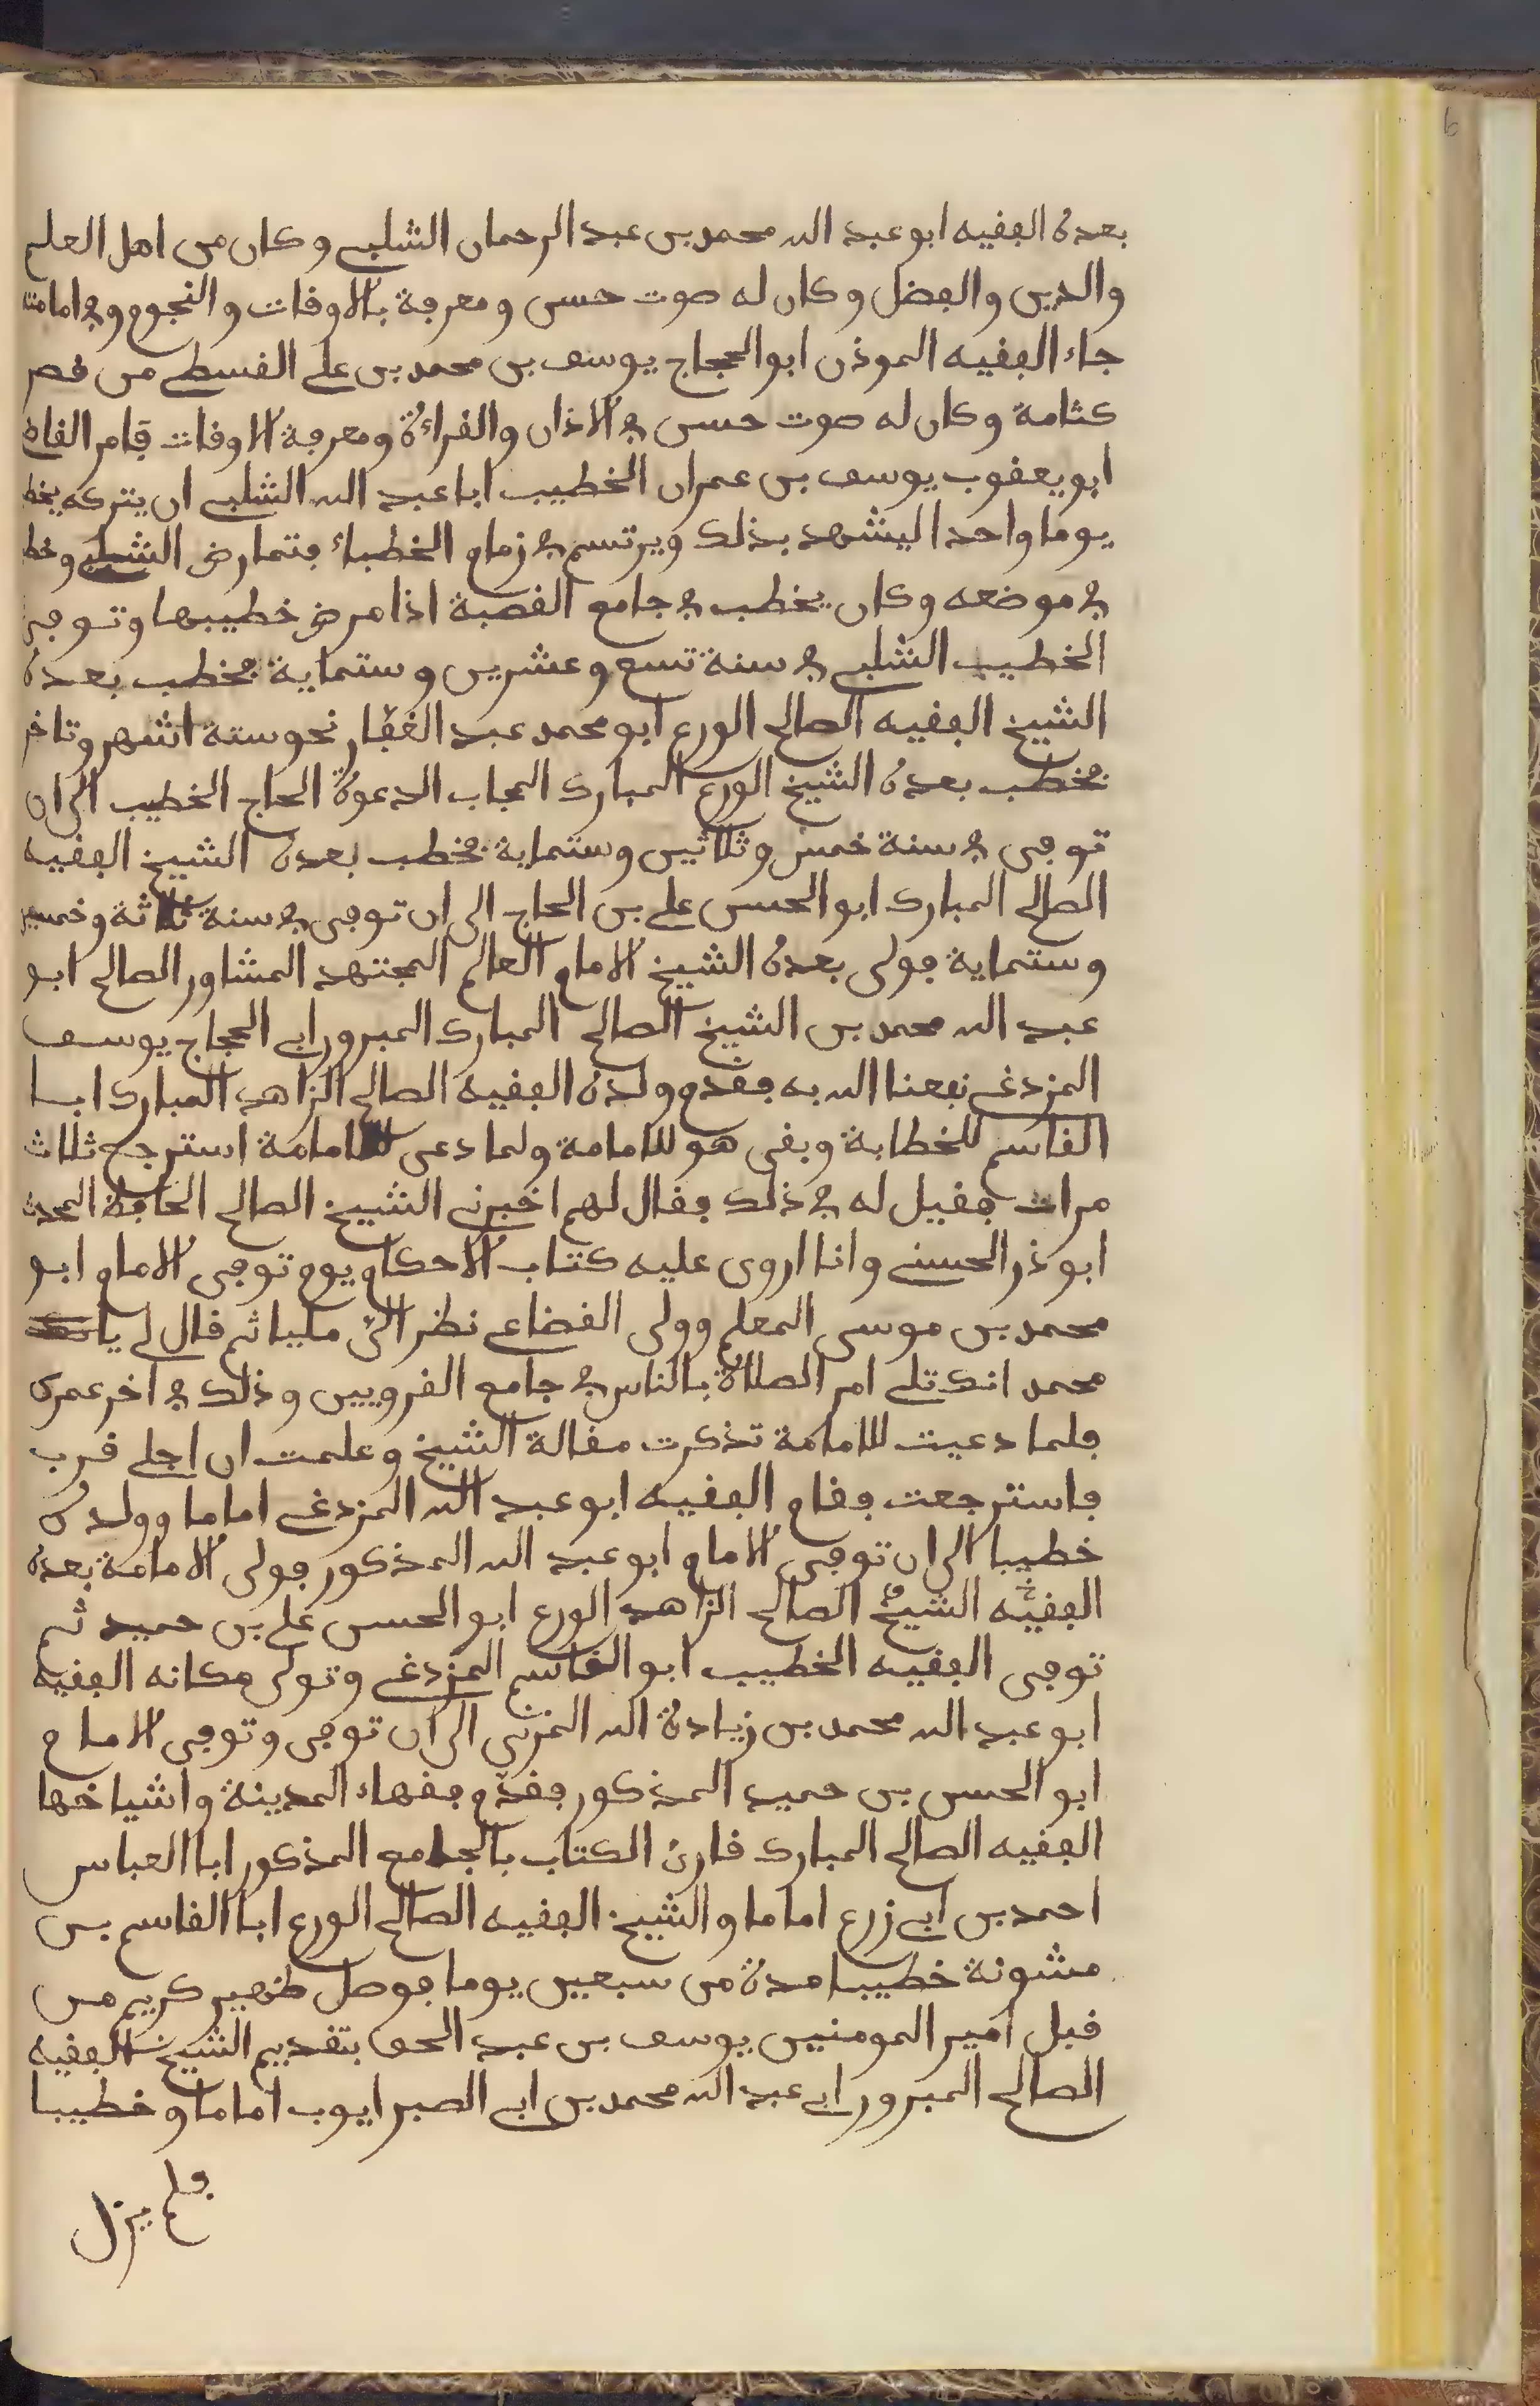 بعده الفقيه ابو عبد الله محمد بن عبد الرحمان الشلبي وكان من اهل العلم
والدين والفضل وكان له صوت حسن ومعرفة بالاوقات والنجوم وفي امامته
جاء الفقيه الموذن ابو الحجاج يوسف بن محمد بن علي القسطي من قصر
كتامة وكان له صوت حسن في الاذان والقراءة ومعرفة الاوقات فامر القاض
ابو يعقوب يوسف بن عمران الخطيب ابا عبد الله الشلبي ان يتركه يخط
يوما واحدا ليشهد بذلك ويرتسم في زمام الخطباء فتمارض الشلبي وخط
في موضعه وكان يخطب في جامع القصبة اذا مرض خطيبها وتوفي
الخطيب الشلبي في سنة تسع وعشرين وستماية فخطب بعده
الشيخ الفقيه الصالح الورع ابو محمد عبد الغفار نحو ستة اشهر وتاخر
فخطب بعده الشيخ الورع المبارك المجاب الدعوة الحاج الخطيب الى ان
توفي في سنة خمس وثلاثين وستماية فخطب بعده الشيخ الفقيه
الصالح المبارك ابو الحسن علي بن الحاج الى ان توفي في سنة ثلاثة وخمسين
وستماية فولى بعده الشيخ الامام العالم المجتهد المشاور الصالح ابو
عبد الله محمد بن الشيخ الصالح المبارك المبرور ابي الحجاج يوسف
المزدغي نفعنا الله به فقدم وولده الفقيه الصالح الزاهد المبارك ابا
القاسم للخطابة وبقى هو للامامة ولما دعى للامامة استرجع ثلاث
مرات فقيل له في ذلك فقال لهم اخبرني الشيخ الصالح الحافظ المحدث
ابو ذر الحسني وانا اروى عليه كتاب الاحكام يوم توفي الامام ابو
محمد بن موسى المعلم وولى القضاعي نظر الىّ مليا ثم قال لي يا
محمد انك تلي امر الصلاة بالناس في جامع القرويين وذلك في اخر عمرك
فلما دعيت للامامة تذكرت مقالة الشيخ وعلمت ان اجلي قرب
فاسترجعت فقام الفقيه ابو عبد الله المزدغي اماما وولده
خطيبا الى ان توفي الامام ابو عبد الله المذكور فولى الامامة بعده
الفقيه الشيخ الصالح الزاهد الورع ابو الحسن علي بن حميد ثم
توفي الفقيه الخطيب ابو القاسم المزدغي وتولى مكانه الفقيه
ابو عبد الله محمد بن زيادة الله المزني الى ان توفي وتوفي الامام
ابو الحسن بن حميد المذكور فقدم فقهاء المدينة واشياخها
الفقيه الصالح المبارك قارئ الكتاب بالجامع المذكور ابا العباس
احمد بن ابي زرع اماما والشيخ الفقيه الصالح الورع ابا القاسم بن
مشونة خطيبا مدة من سبعين يوما فوصل ظهير كريم من
قبل امير المومنين يوسف بن عبد الحق بتقديم الشيخ الفقيه
الصالح المبرور ابي عبد الله محمد بن ابي الصبر ايوب اماما وخطيبا
فلم يزل